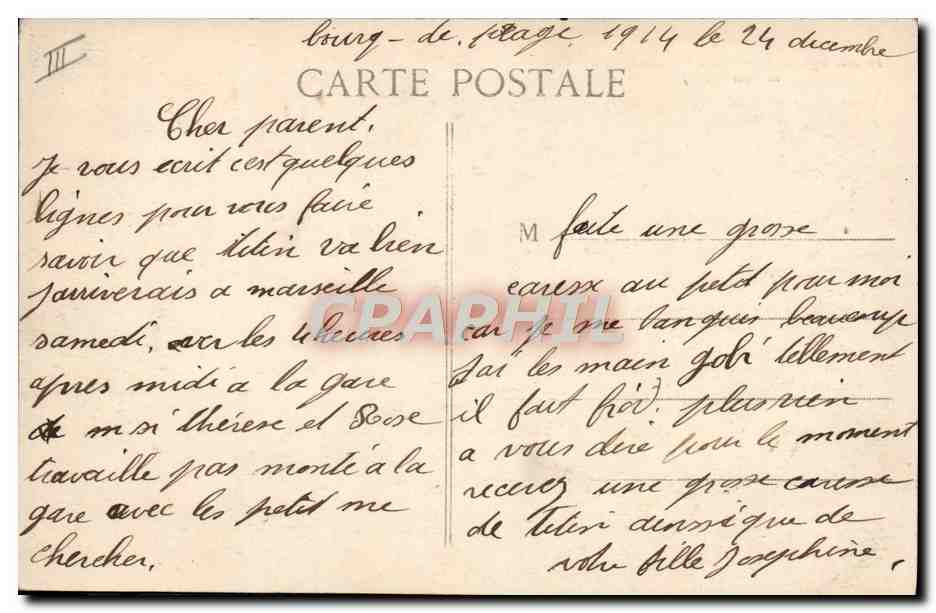 III
bourg - de. péage. 1914 le 24 decembre
CARTE POSTALE
Cher parent.
Je vous ecrit c'est quelques
lignes pour vous faire
savoir que titin va bien
J'arriverais a marseille
samedi, ver les 4 heures
apres midi a la gare
m si thérèse et Rose
travaille pas monté a la
gare avec les petit me
chercher.
M faite une grosse
caresse au petit pour moi
car je me languis beaucoup
J'ai les main gelé tellement
il fait froid. plus rien
a vous dire pour le moment
recevez une grosse caresse
de titin ainssi que de
votre fille Josephine,
CPAPHIL